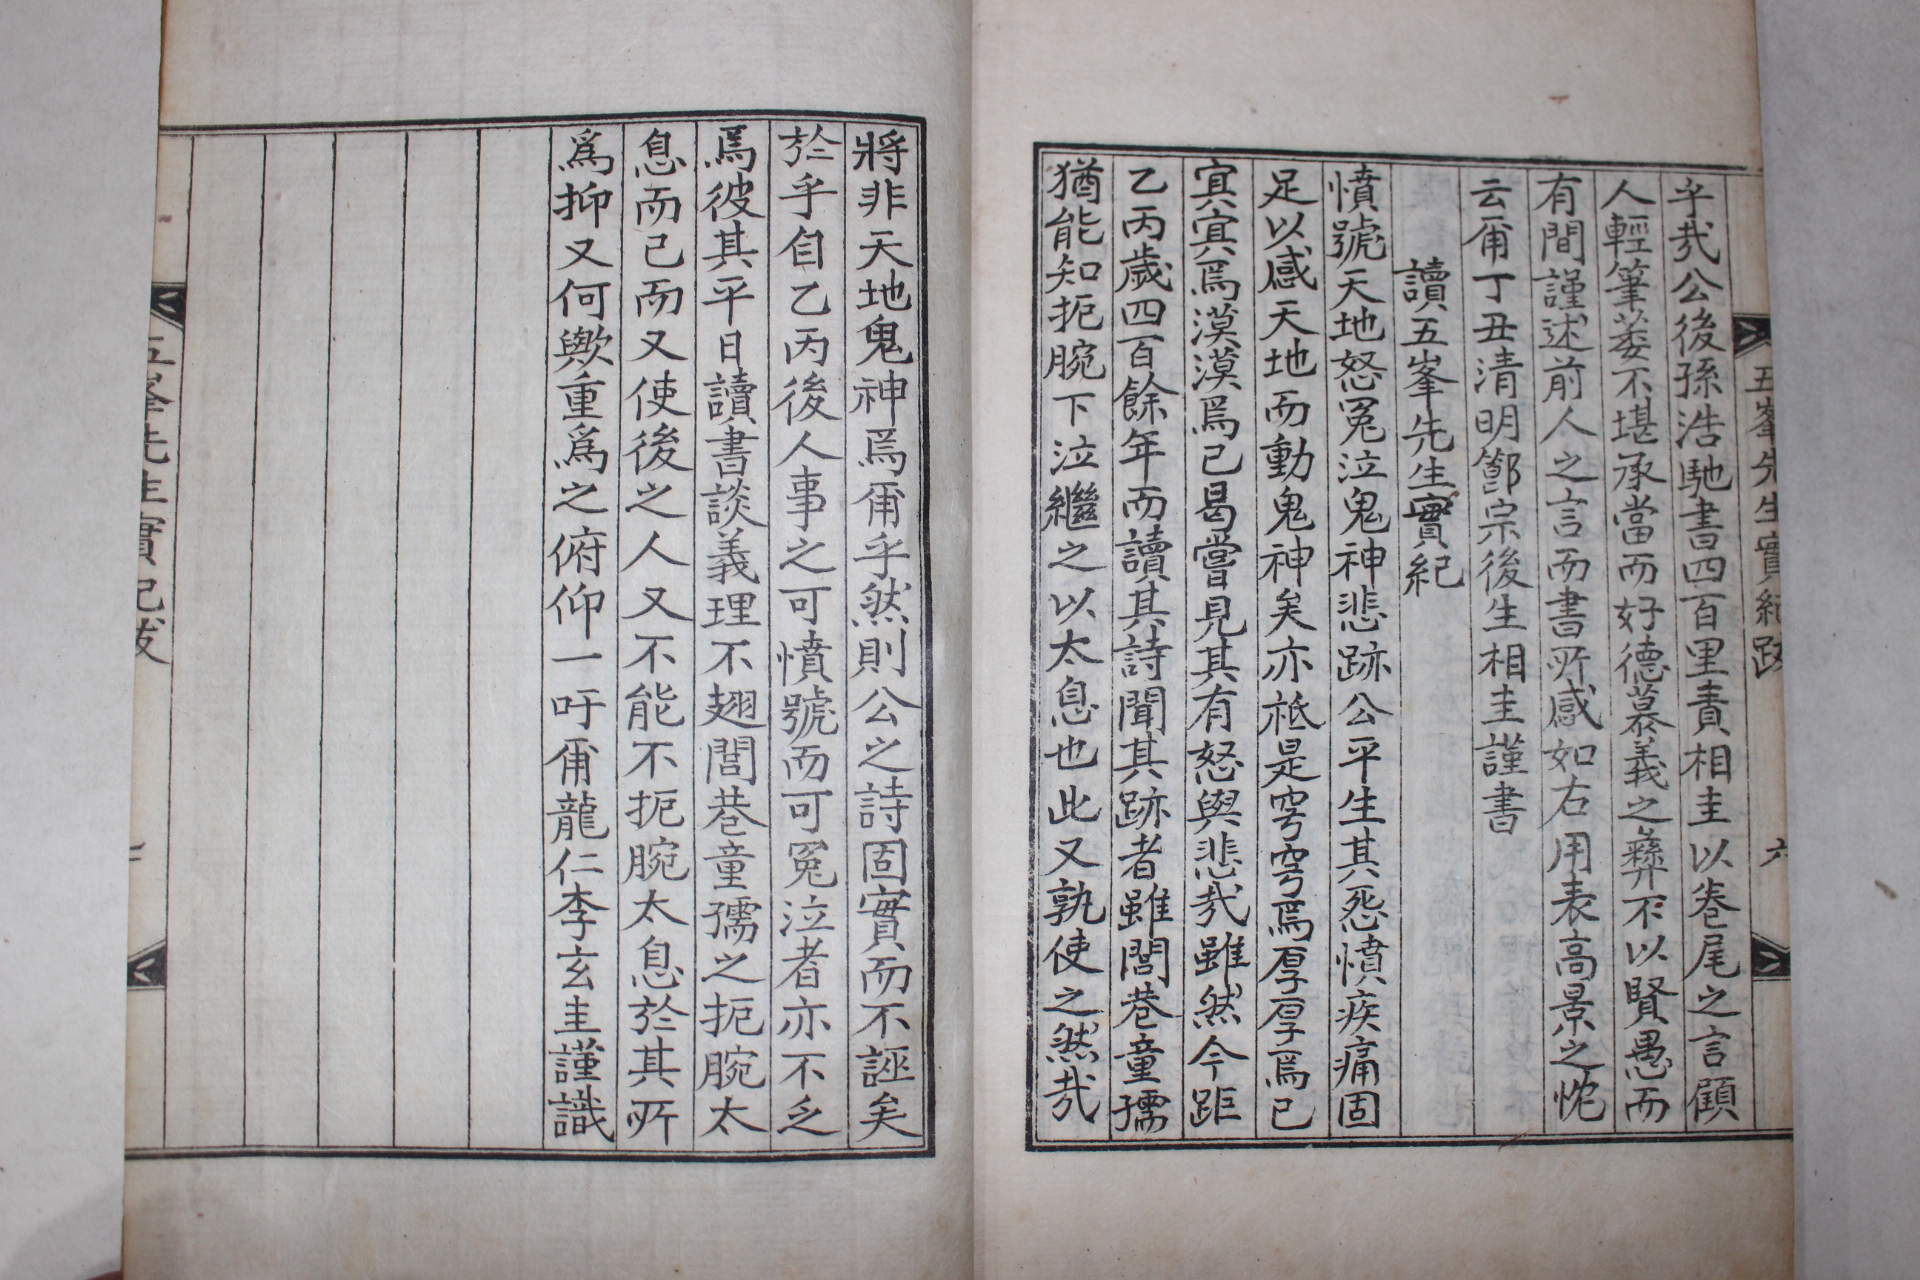 五峯先生實紀跋
六
乎哉公後孫浩馳書四百里責相圭以卷尾之言顧
人輕筆萎不堪承當而好德慕義之彛不以賢愚而
有間謹述前人之言而書所感如右用表高景之忱
云甭丁丑清明鄒宗後生相圭謹書
讀五峯先生實紀
憤號天地怒冤泣鬼神悲跡公平生其怨憤疾痛固
足以感天地而動鬼神矣亦祗是穹穹焉厚厚焉已
冥冥焉漠漠焉已曷嘗見其有怒與悲哉雖然今距
乙丙歲四百餘年而讀其詩聞其跡者雖閭巷童孺
猶能知扼腕下泣繼之以太息也此又孰使之然哉
將非天地鬼神焉甭乎然則公之詩固實而不誣矣
於乎自乙丙後人事之可憤號而可冤泣者亦不乏
焉彼其平日讀書談義理不翅閭巷童孺之扼腕太
息而已而又使後之人又不能不扼腕太息於其所
爲抑又何歟重爲之俯仰一吁甭龍仁李玄圭謹識
五峯先生實紀跋